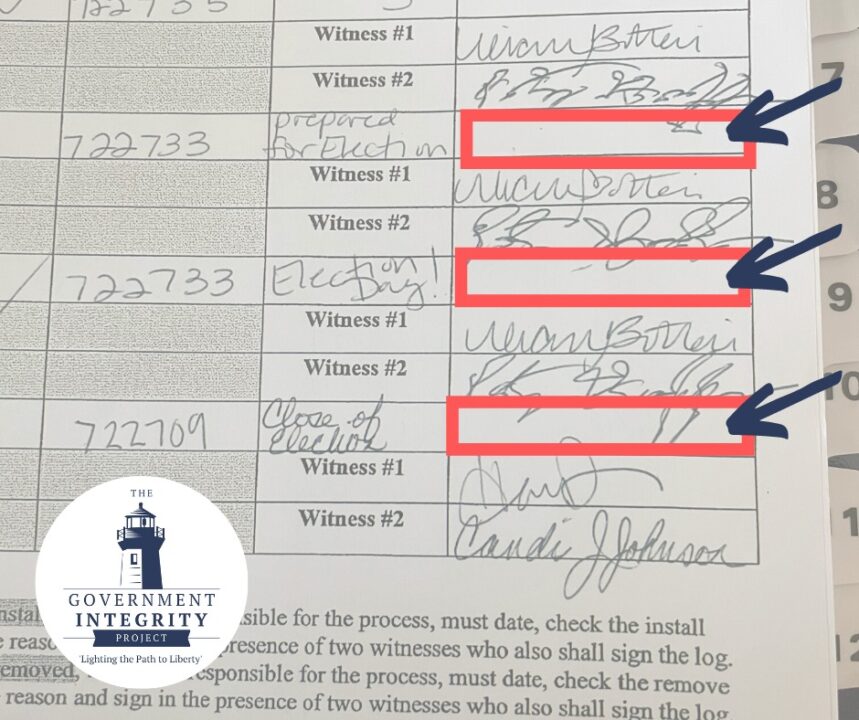 122735
Witness #1
Witness #2
722733
prepared
for Election
Witness #1
Witness #2
722733
Election
Day!
Witness #1
Witness #2
722709
Close of
Election
Witness #1
Witness #2
Candi J Johnson
7
8
9
10
1
12
THE
GOVERNMENT
INTEGRITY
PROJECT
'Lighting the Path to Liberty'
nstal sible for the process, must date, check the install
e reaso presence of two witnesses who also shall sign the log.
emoved, esponsible for the process, must date, check the remove
reason and sign in the presence of two witnesses who also shall sign the log.